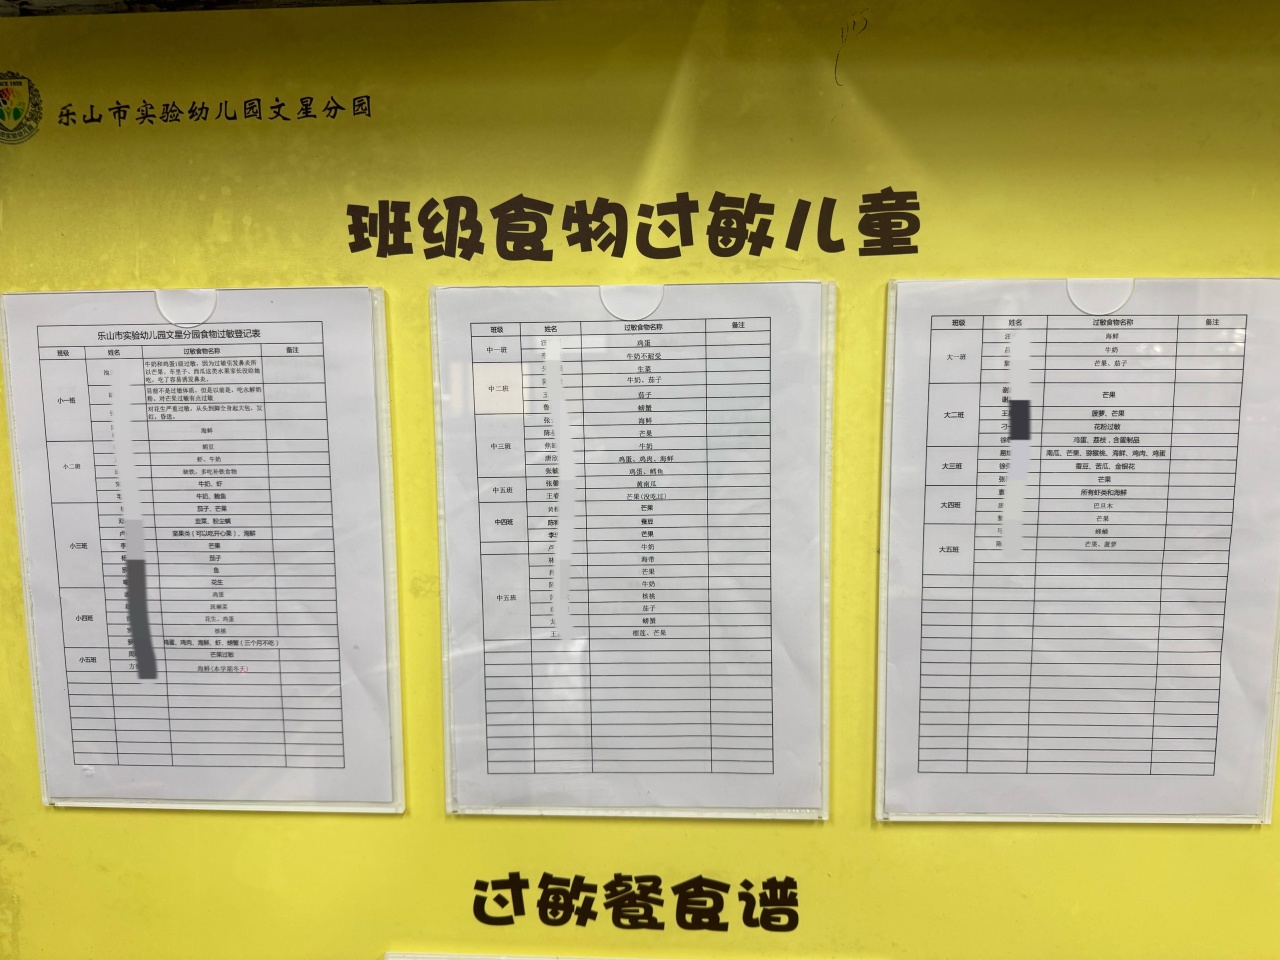 乐山市实验幼儿园文星分园
班级食物过敏儿童
乐山市实验幼儿园文星分园食物过敏登记表
班级 姓名 过敏食物名称 备注
小一班
牛奶和鸡蛋1级过敏，因为过敏引发鼻炎所
以芒果、车厘子、西瓜这类水果家长没给她
吃，吃了容易诱发鼻炎。
目前不是过敏体质，但是以前是，吃水解奶
粉，对芒果过敏有点过敏
对花生严重过敏，从头到脚全身起大包，发
红，昏迷。
海鲜
小二班
豌豆
虾、牛奶
缺铁，多吃补铁食物
牛奶、虾
牛奶、鲍鱼
小三班
茄子、芒果
韭菜、粉尘螨
卢 坚果类（可以吃开心果）、海鲜
李 芒果
杨 茄子
鱼
花生
小四班
鸡蛋
花生、鸡蛋
核桃
鸡蛋、鸡肉、海鲜、虾、螃蟹（三个月不吃）
小五班
周 芒果过敏
方 海鲜(本学期冬天)
班级 姓名 过敏食物名称 备注
中一班
汪 鸡蛋
牛奶不耐受
中二班
生菜
牛奶、茄子
王 茄子
鲁 螃蟹
中三班
张 海鲜
陈 芒果
焦 牛奶
唐欣 鸡蛋、鸡肉、海鲜
张敏 鸡蛋、鳕鱼
中五班
张馨 黄南瓜
王春 芒果(没吃过)
中四班
黄 芒果
陈 蚕豆
李 芒果
中五班
卢 牛奶
林 海带
芒果
陈 牛奶
核桃
茄子
龙 螃蟹
王 榴莲、芒果
班级 姓名 过敏食物名称 备注
大一班
汪 海鲜
吕 牛奶
芒果、茄子
大二班
谢
谢 芒果
王 菠萝、芒果
刁 花粉过敏
徐 鸡蛋、荔枝，含蛋制品
大三班
南瓜、芒果、猕猴桃、海鲜、鸡肉、鸡蛋
徐 蚕豆、苦瓜、金银花
张 芒果
大四班
袁 所有虾类和海鲜
巴旦木
芒果
大五班
蟑螂
陈 芒果、菠萝
过敏餐食谱